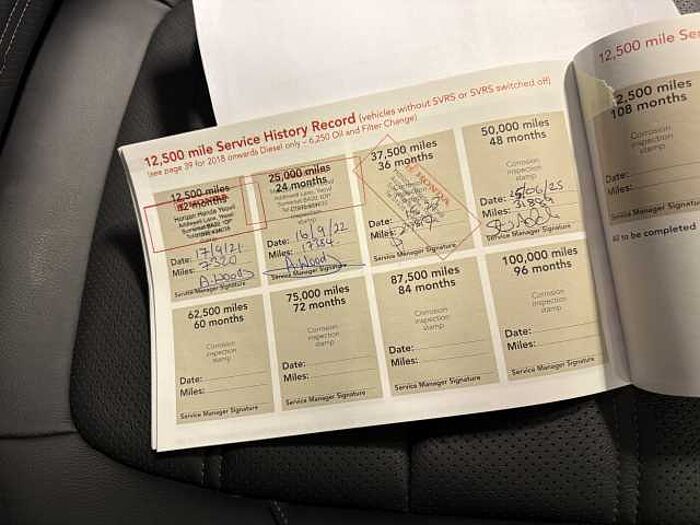 12,500 mile Service History Record (vehicles without SVRS or SVRS switched off)
(see page 39 for 2018 onwards Diesel only – 6,250 Oil and Filter Change)
12,500 miles
12 months
Horizon Honda Yeovil
Date: 17/9/21
Miles: 7320
A.Woods
Service Manager Signature
25,000 miles
24 months
Date: 16/9/22
Miles: 17384
A.Woods
Service Manager Signature
37,500 miles
36 months
HONDA
Date:
Miles:
Service Manager Signature
50,000 miles
48 months
Corrosion
inspection
stamp
Date: /06/25
Miles:
Service Manager Signature
62,500 miles
60 months
Corrosion
inspection
stamp
Date:
Miles:
Service Manager Signature
75,000 miles
72 months
Corrosion
inspection
stamp
Date:
Miles:
Service Manager Signature
87,500 miles
84 months
Corrosion
inspection
stamp
Date:
Miles:
Service Manager Signature
100,000 miles
96 months
Corrosion
inspection
stamp
Date:
Miles:
Service Manager Signature
12,500 mile Ser
2,500 miles
108 months
Corrosion
inspection
stamp
Date:
Miles:
Service Manager
to be completed